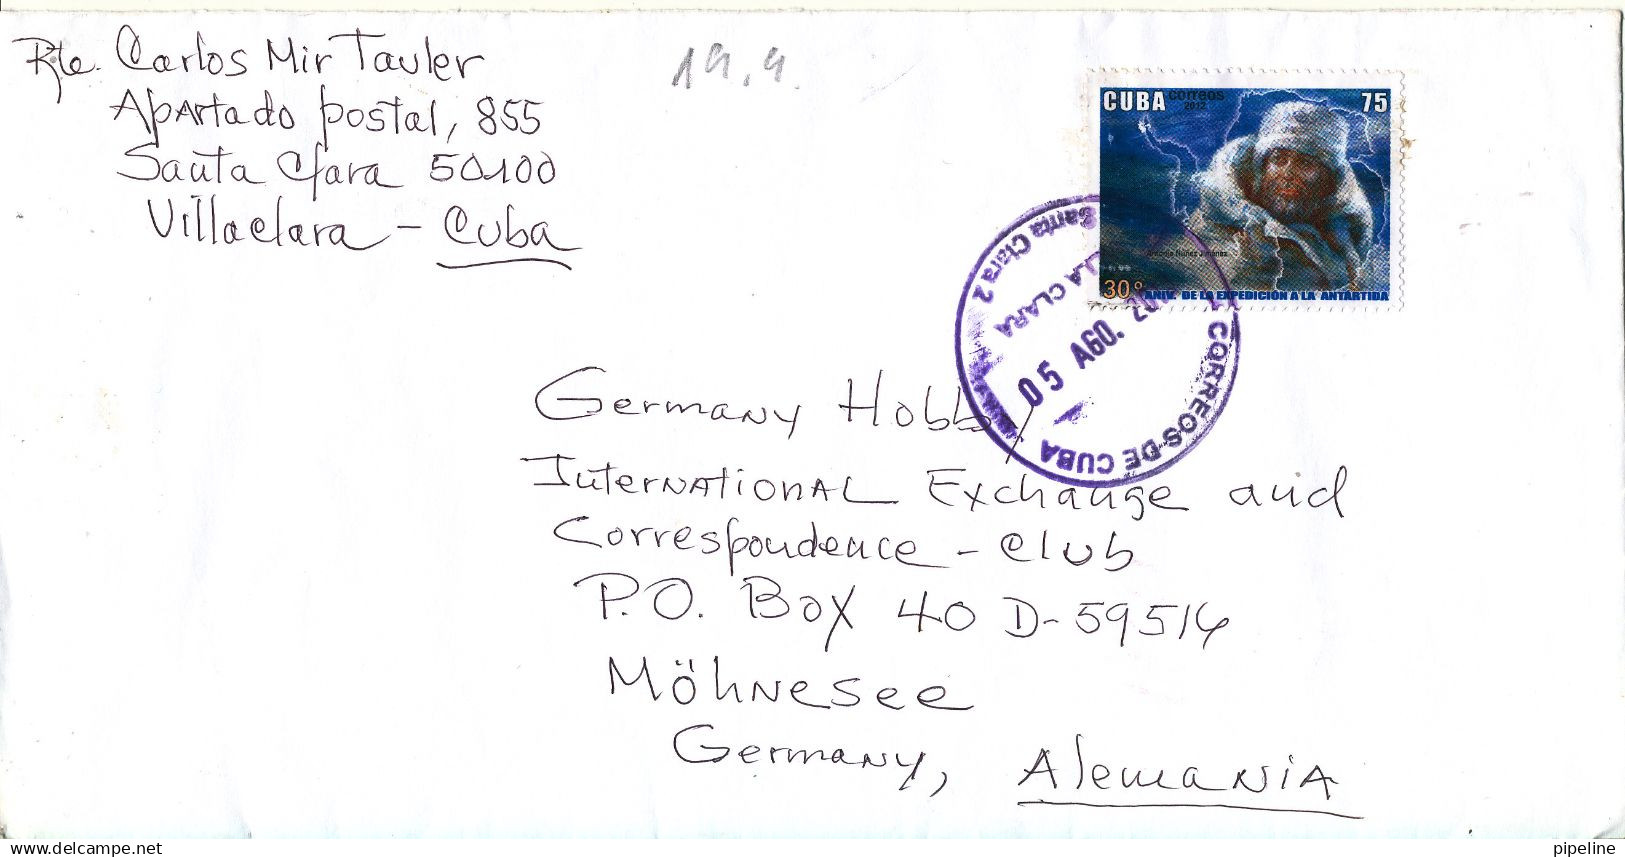 Rte. Carlos Mir Tauler
Apartado postal, 855
Santa Clara 50100
Villaclara - Cuba
19.9
CUBA correos 75
2012
Antonio Núñez Jiménez
30º ANIV. DE LA EXPEDICIÓN A LA ANTARTIDA
Santa Clara 2
CLARA
05 AGO.
CORREOS DE CUBA
Germany Hobby
International Exchange and
Correspondence - Club
P.O. Box 40 D-59514
Möhnesee
Germany, Alemania
delcampe.net
pipeline